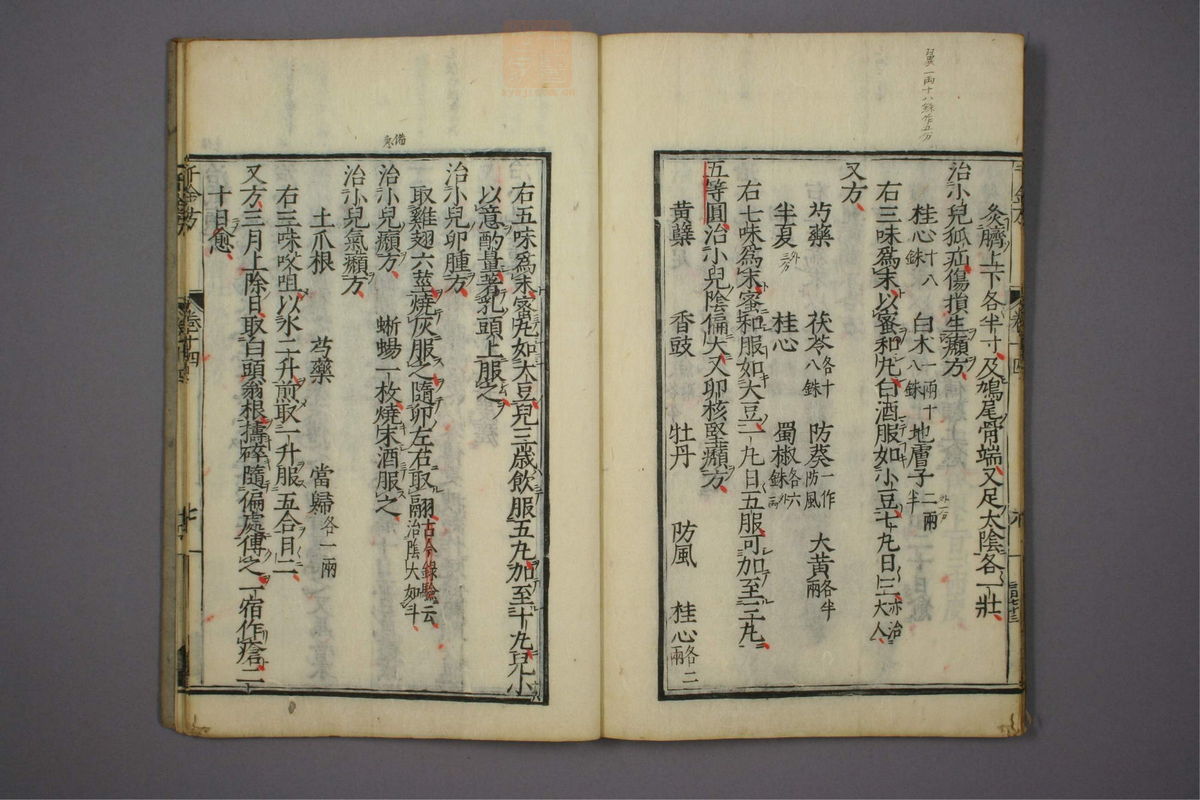 灸臍上下各半寸及鳩尾骨端又足太陰各一壯
治小兒狐疝傷損生㿗方
桂心十八銖 白朮一兩十八銖 地膚子二兩半
右三味爲末以蜜和丸白酒服如小豆七丸日三亦治大人
又方
芍藥 茯苓各十八銖 防葵一作防風 大黃各半兩
半夏 桂心 蜀椒各六銖
右七味爲末蜜和服如大豆一丸日五服可加至三丸
五等圓治小兒陰偏大又卵核堅㿗方
黃蘗 香豉 牡丹 防風 桂心各二兩
右五味爲末蜜丸如大豆兒三歲飲服五丸加至十丸兒小
以意酌量著乳頭上服之
治小兒卵腫方
取雞翅六莖燒灰服之隨卵左右取翮古今錄驗云治陰大如斗
治小兒㿗方 蜥蜴一枚燒末酒服之
治小兒氣㿗方
土瓜根 芍藥 當歸各一兩
右三味㕮咀以水二升煎取一升服五合日二
又方三月上除日取白頭翁根擣碎隨偏處傅之一宿作瘡二
十日愈
千金方 卷十四